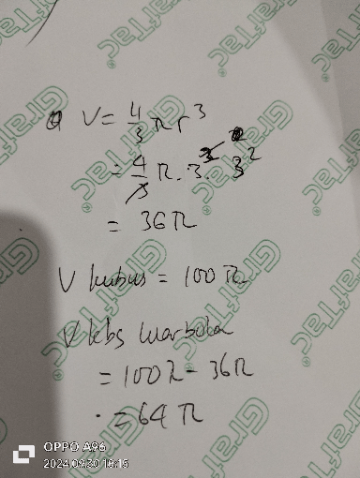 V = 4/3 π r³
= 4/3 π . 3 . 3²
= 36 π
V kubus = 100 π
V kbs luar bola
= 100 π - 36 π
= 64 π
GrafTac
OPPO A96
2024.09.30 16:15